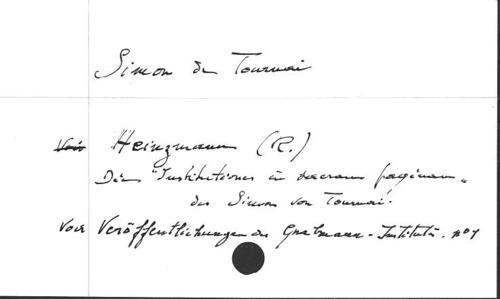 Simon de Tournai
Voir Heinzmann (R.)
Die "Institutiones in sacram paginam"
des Simon von Tournai.
Voir Veröffentlichungen des Grabmann-Instituts. n° 1